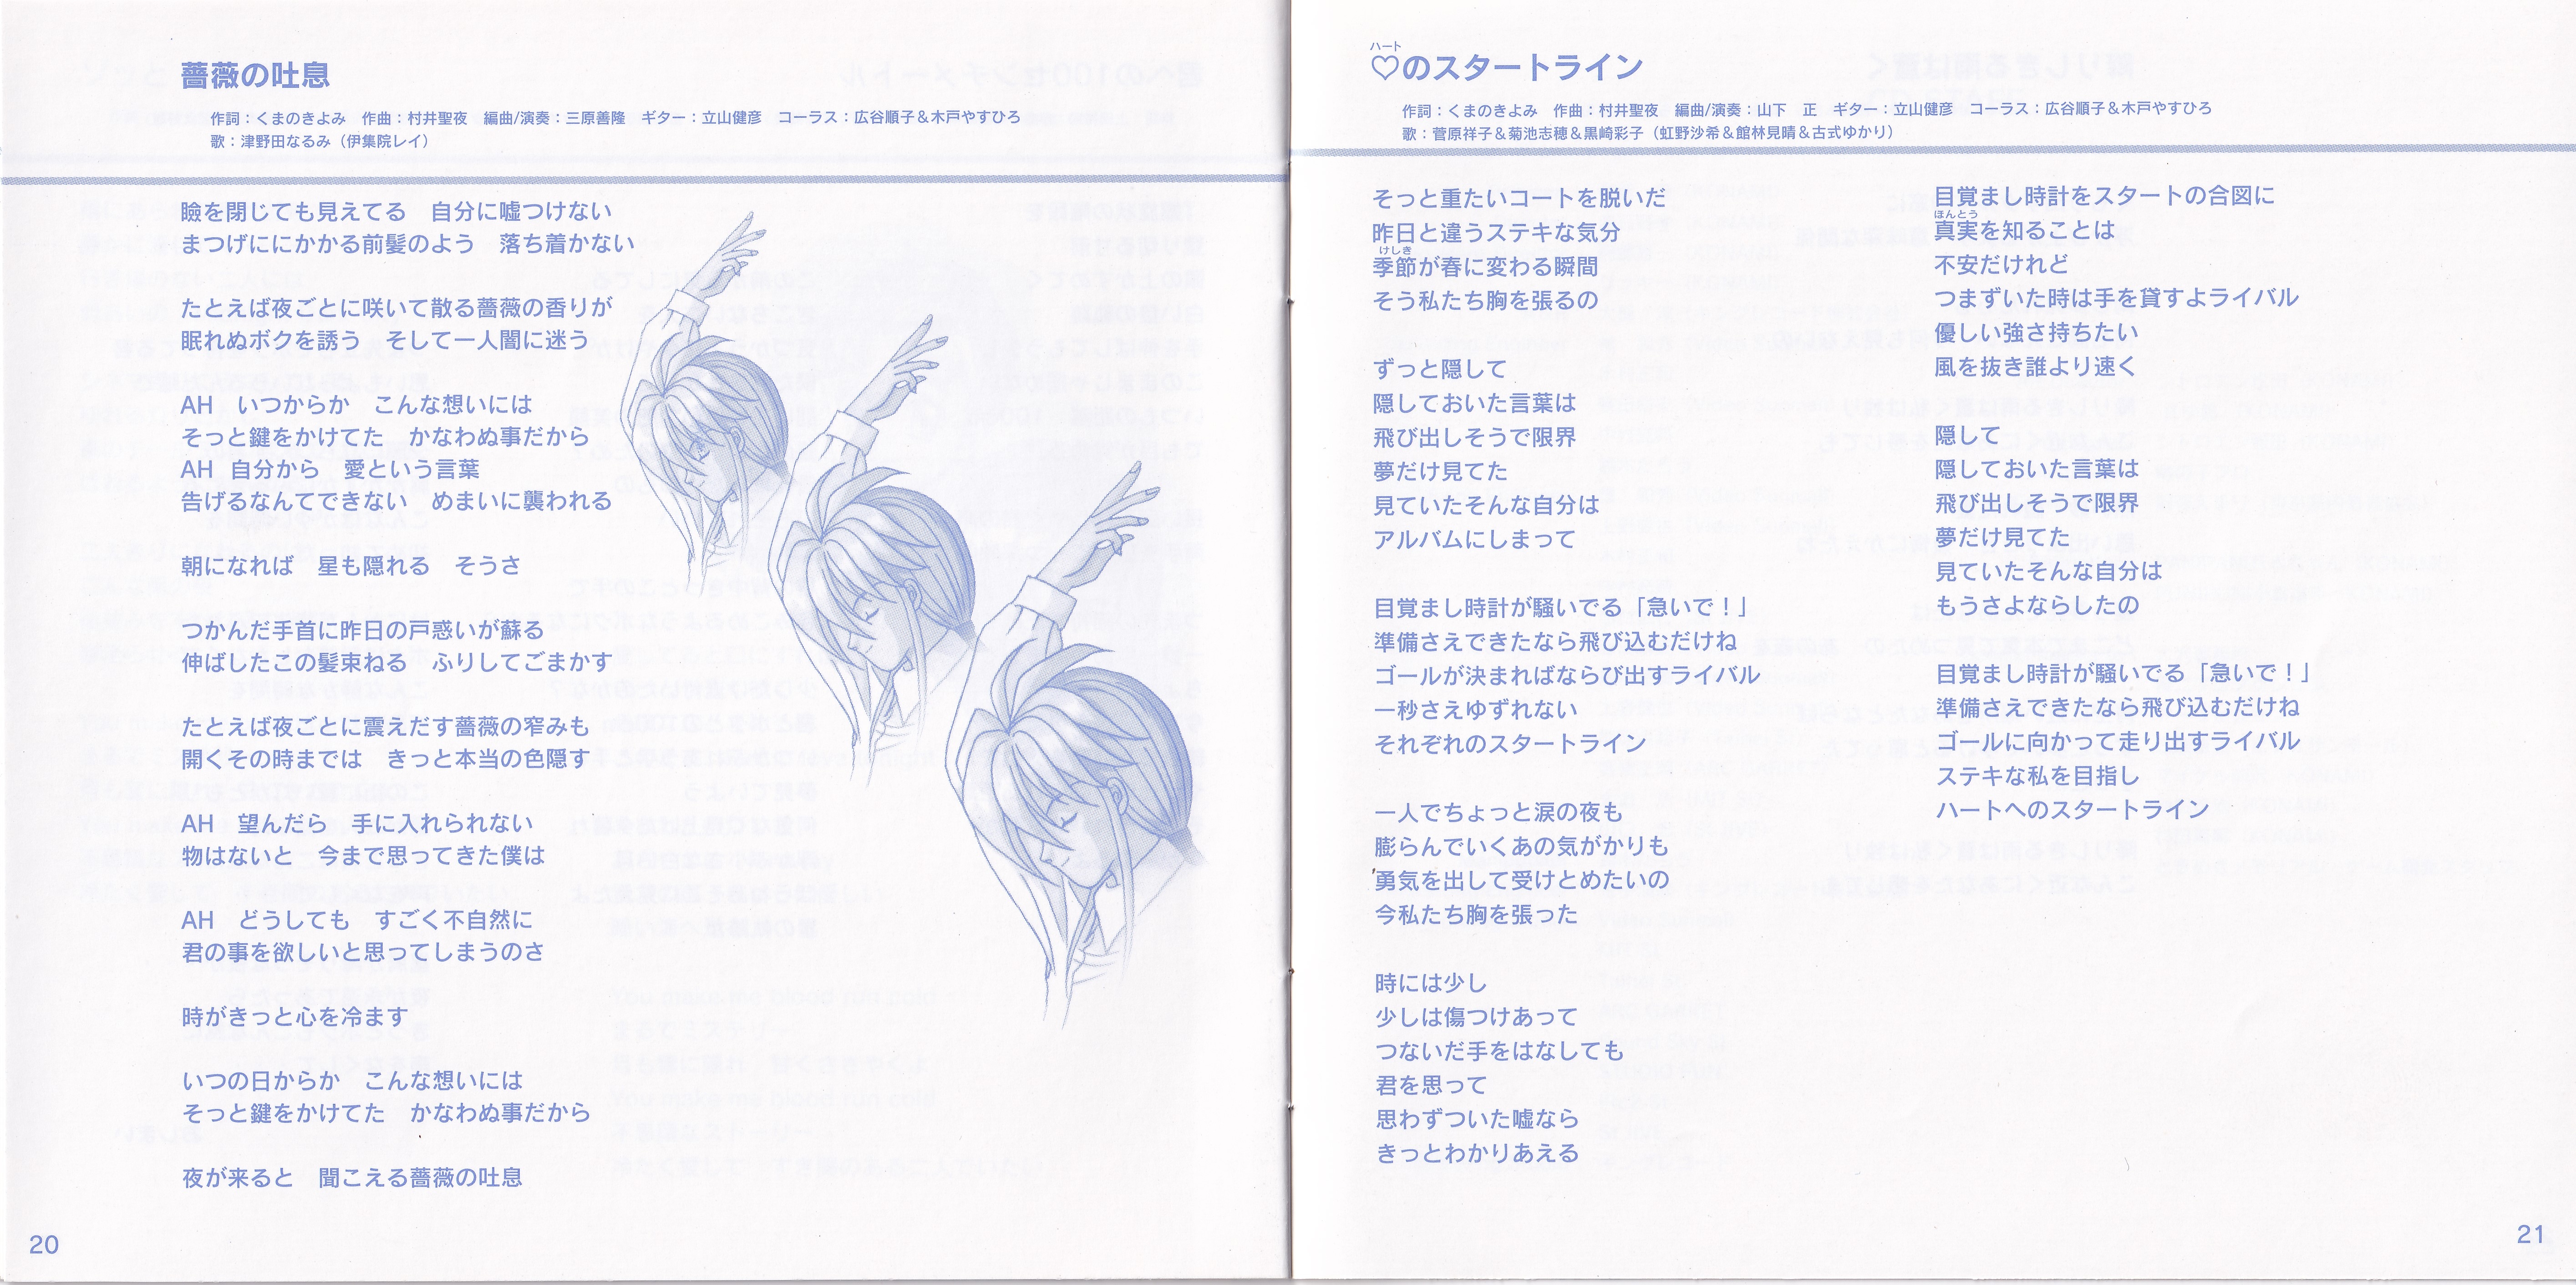 薔薇の吐息
作詞：くまのきよみ　作曲：村井聖夜　編曲/演奏：三原善隆　ギター：立山健彦　コーラス：広谷順子＆木戸やすひろ
歌：津野田なるみ（伊集院レイ）
瞼を閉じても見えてる　自分に嘘つけない
まつげににかかる前髪のよう　落ち着かない
たとえば夜ごとに咲いて散る薔薇の香りが
眠れぬボクを誘う　そして一人闇に迷う
AH　いつからか　こんな想いには
そっと鍵をかけてた　かなわぬ事だから
AH　自分から　愛という言葉
告げるなんてできない　めまいに襲われる
朝になれば　星も隠れる　そうさ
つかんだ手首に昨日の戸惑いが蘇る
伸ばしたこの髪束ねる　ふりしてごまかす
たとえば夜ごとに震えだす薔薇の窄みも
開くその時までは　きっと本当の色隠す
AH　望んだら　手に入れられない
物はないと　今まで思ってきた僕は
AH　どうしても　すごく不自然に
君の事を欲しいと思ってしまうのさ
時がきっと心を冷ます
いつの日からか　こんな想いには
そっと鍵をかけてた　かなわぬ事だから
夜が来ると　聞こえる薔薇の吐息
20
ハート
♡のスタートライン
作詞：くまのきよみ　作曲：村井聖夜　編曲/演奏：山下　正　ギター：立山健彦　コーラス：広谷順子＆木戸やすひろ
歌：菅原祥子＆菊池志穂＆黒崎彩子（虹野沙希＆館林見晴＆古式ゆかり）
そっと重たいコートを脱いだ
昨日と違うステキな気分
けしき
季節が春に変わる瞬間
そう私たち胸を張るの
ずっと隠して
隠しておいた言葉は
飛び出しそうで限界
夢だけ見てた
見ていたそんな自分は
アルバムにしまって
目覚まし時計が騒いでる「急いで！」
準備さえできたなら飛び込むだけね
ゴールが決まればならび出すライバル
一秒さえゆずれない
それぞれのスタートライン
一人でちょっと涙の夜も
膨らんでいくあの気がかりも
勇気を出して受けとめたいの
今私たち胸を張った
時には少し
少しは傷つけあって
つないだ手をはなしても
君を思って
思わずついた嘘なら
きっとわかりあえる
目覚まし時計をスタートの合図に
ほんとう
真実を知ることは
不安だけれど
つまずいた時は手を貸すよライバル
優しい強さ持ちたい
風を抜き誰より速く
隠して
隠しておいた言葉は
飛び出しそうで限界
夢だけ見てた
見ていたそんな自分は
もうさよならしたの
目覚まし時計が騒いでる「急いで！」
準備さえできたなら飛び込むだけね
ゴールに向かって走り出すライバル
ステキな私を目指し
ハートへのスタートライン
21